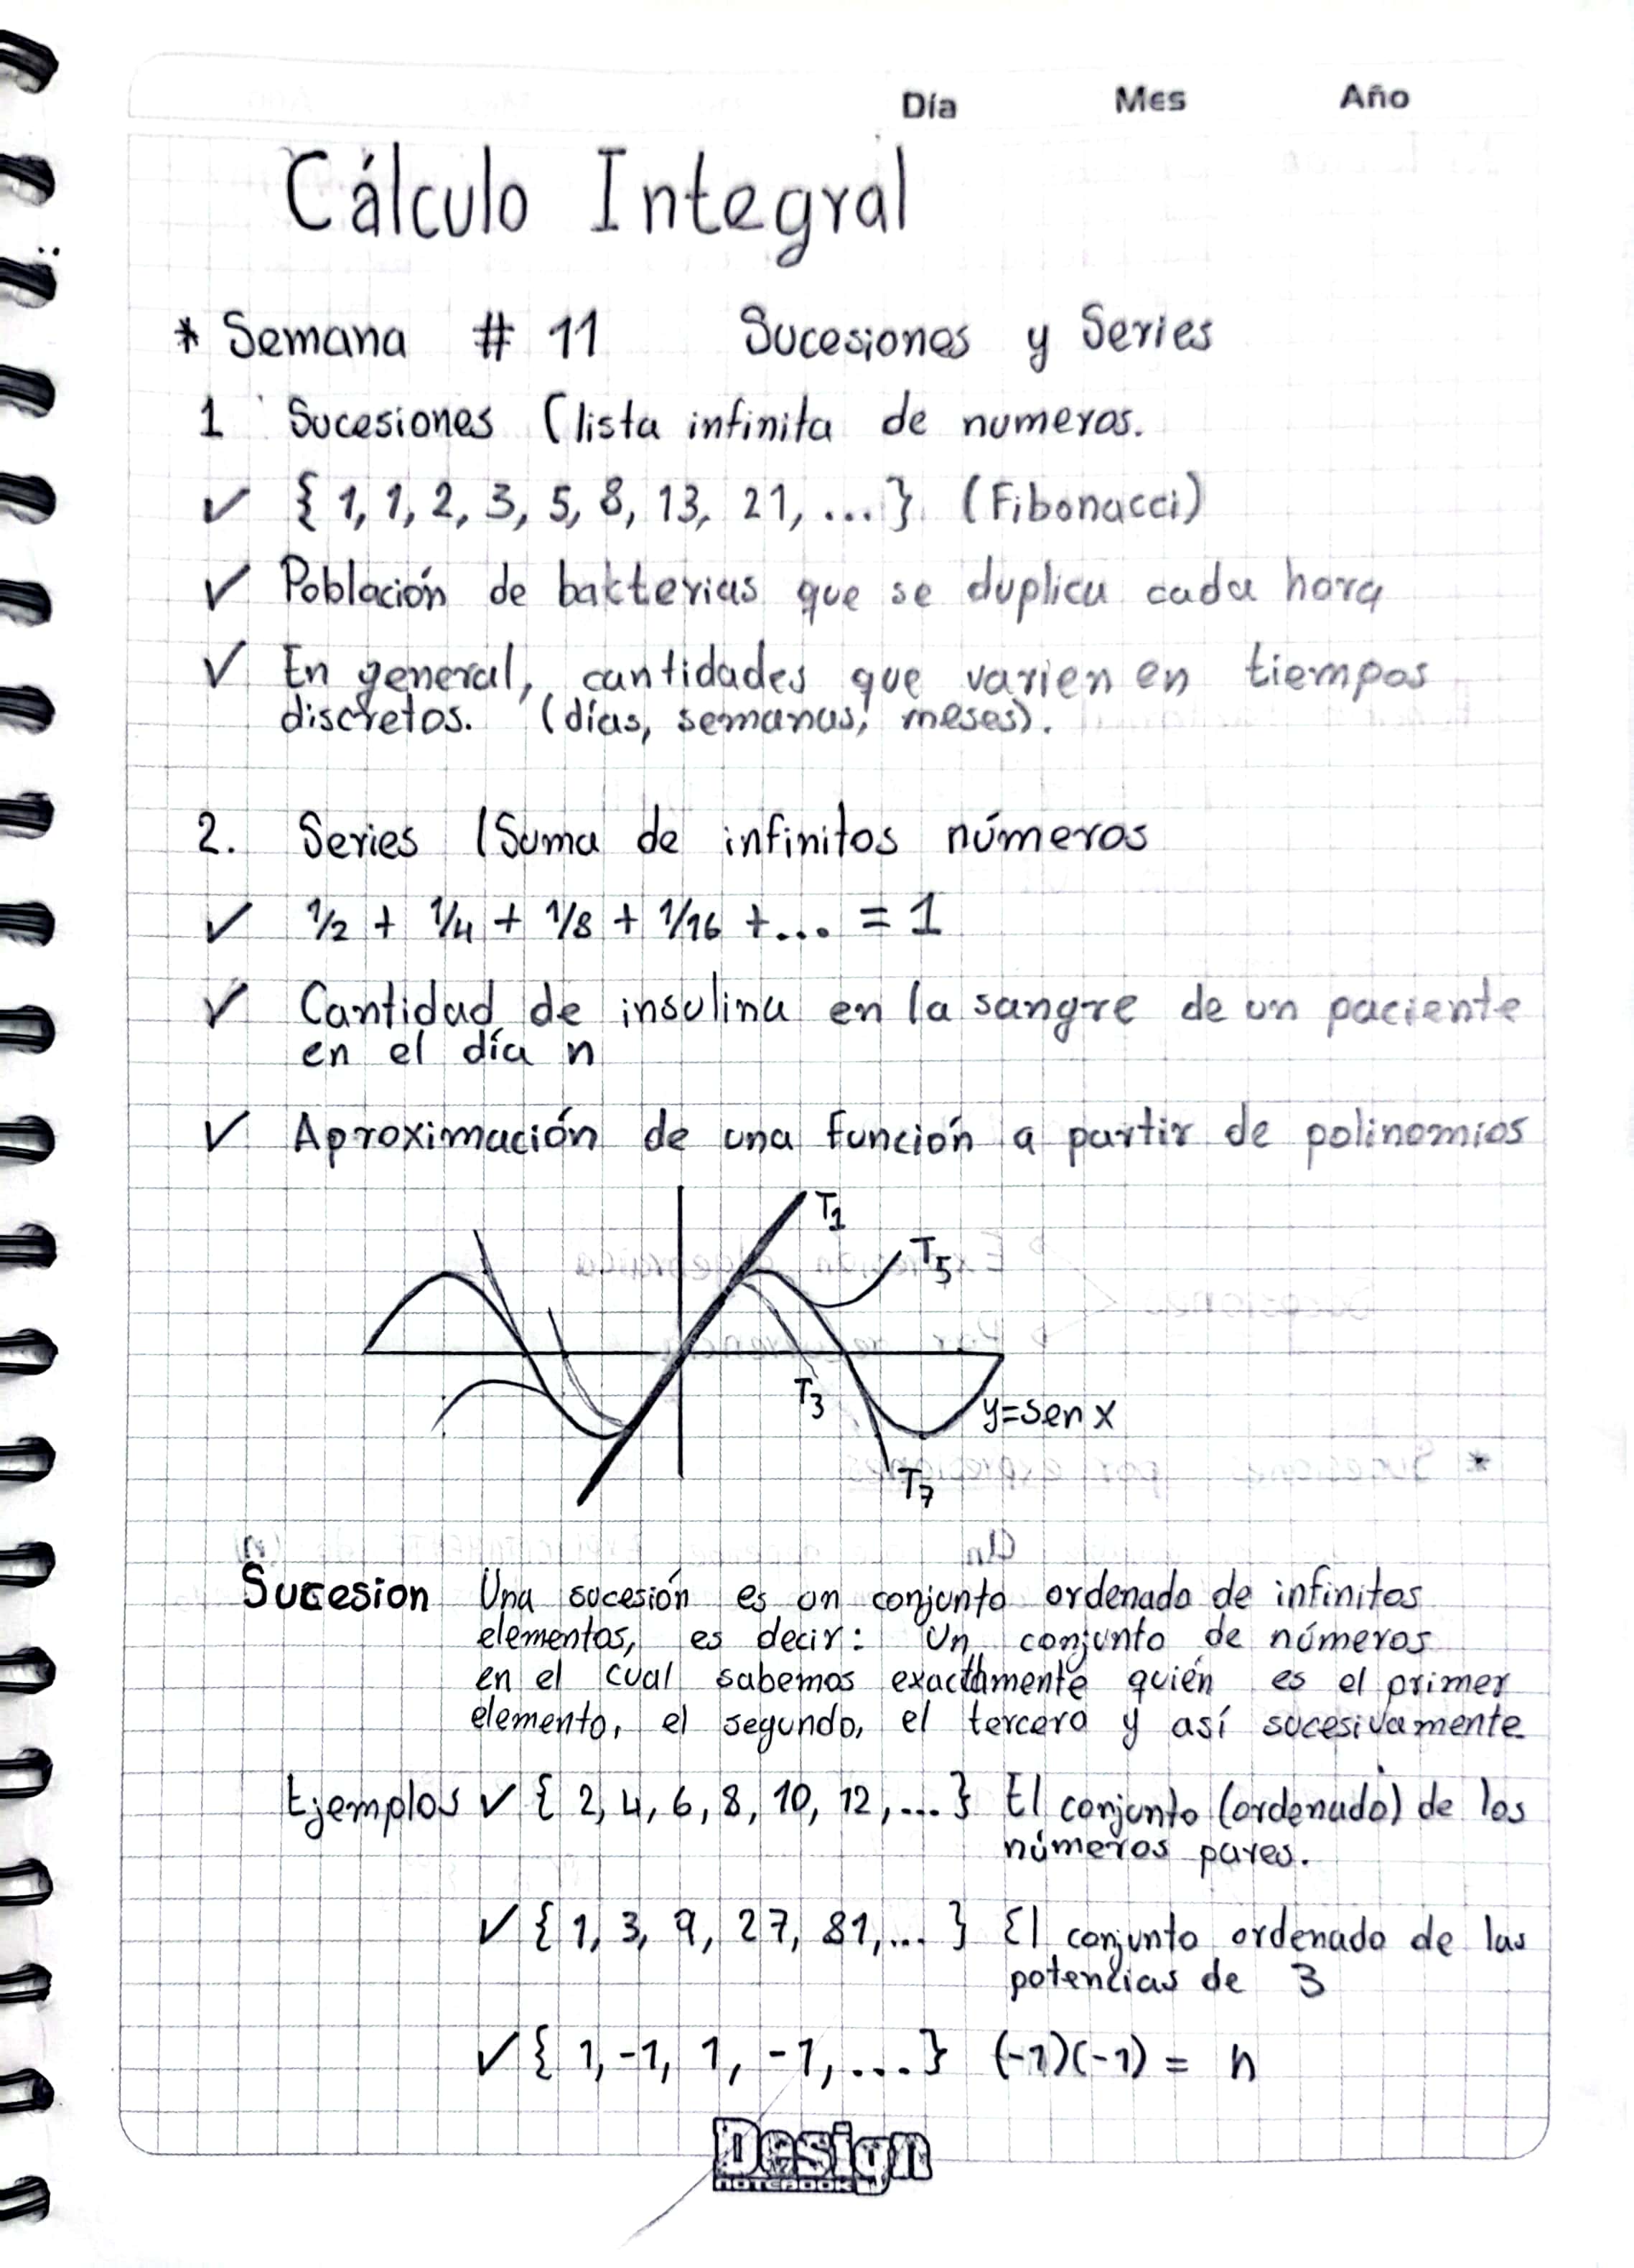 Día Mes Año
Cálculo Integral
* Semana # 11 Sucesiones y Series
1 Sucesiones (lista infinita de numeros.
✓ { 1, 1, 2, 3, 5, 8, 13, 21, ... } (Fibonacci)
✓ Población de bakterias que se duplica cada hora
✓ En general, cantidades que varien en tiempos
discretos. (días, semanas, meses).
2. Series (Suma de infinitos números
✓ 1/2 + 1/4 + 1/8 + 1/16 + ... = 1
✓ Cantidad de insulina en la sangre de un paciente
en el día n
✓ Aproximación de una función a partir de polinomios
T1
T5
T3
y=sen x
T7
Sucesion Una sucesión es un conjunto ordenado de infinitos
elementos, es decir: Un conjunto de números
en el cual sabemos exactamente quién es el primer
elemento, el segundo, el tercero y así sucesivamente
Ejemplos ✓ { 2, 4, 6, 8, 10, 12, ... } El conjunto (ordenado) de los
números pares.
✓ { 1, 3, 9, 27, 81, ... } El conjunto ordenado de las
potencias de 3
✓ { 1, -1, 1, -1, ... } (-1)(-1) = n
Design
NOTEBOOK